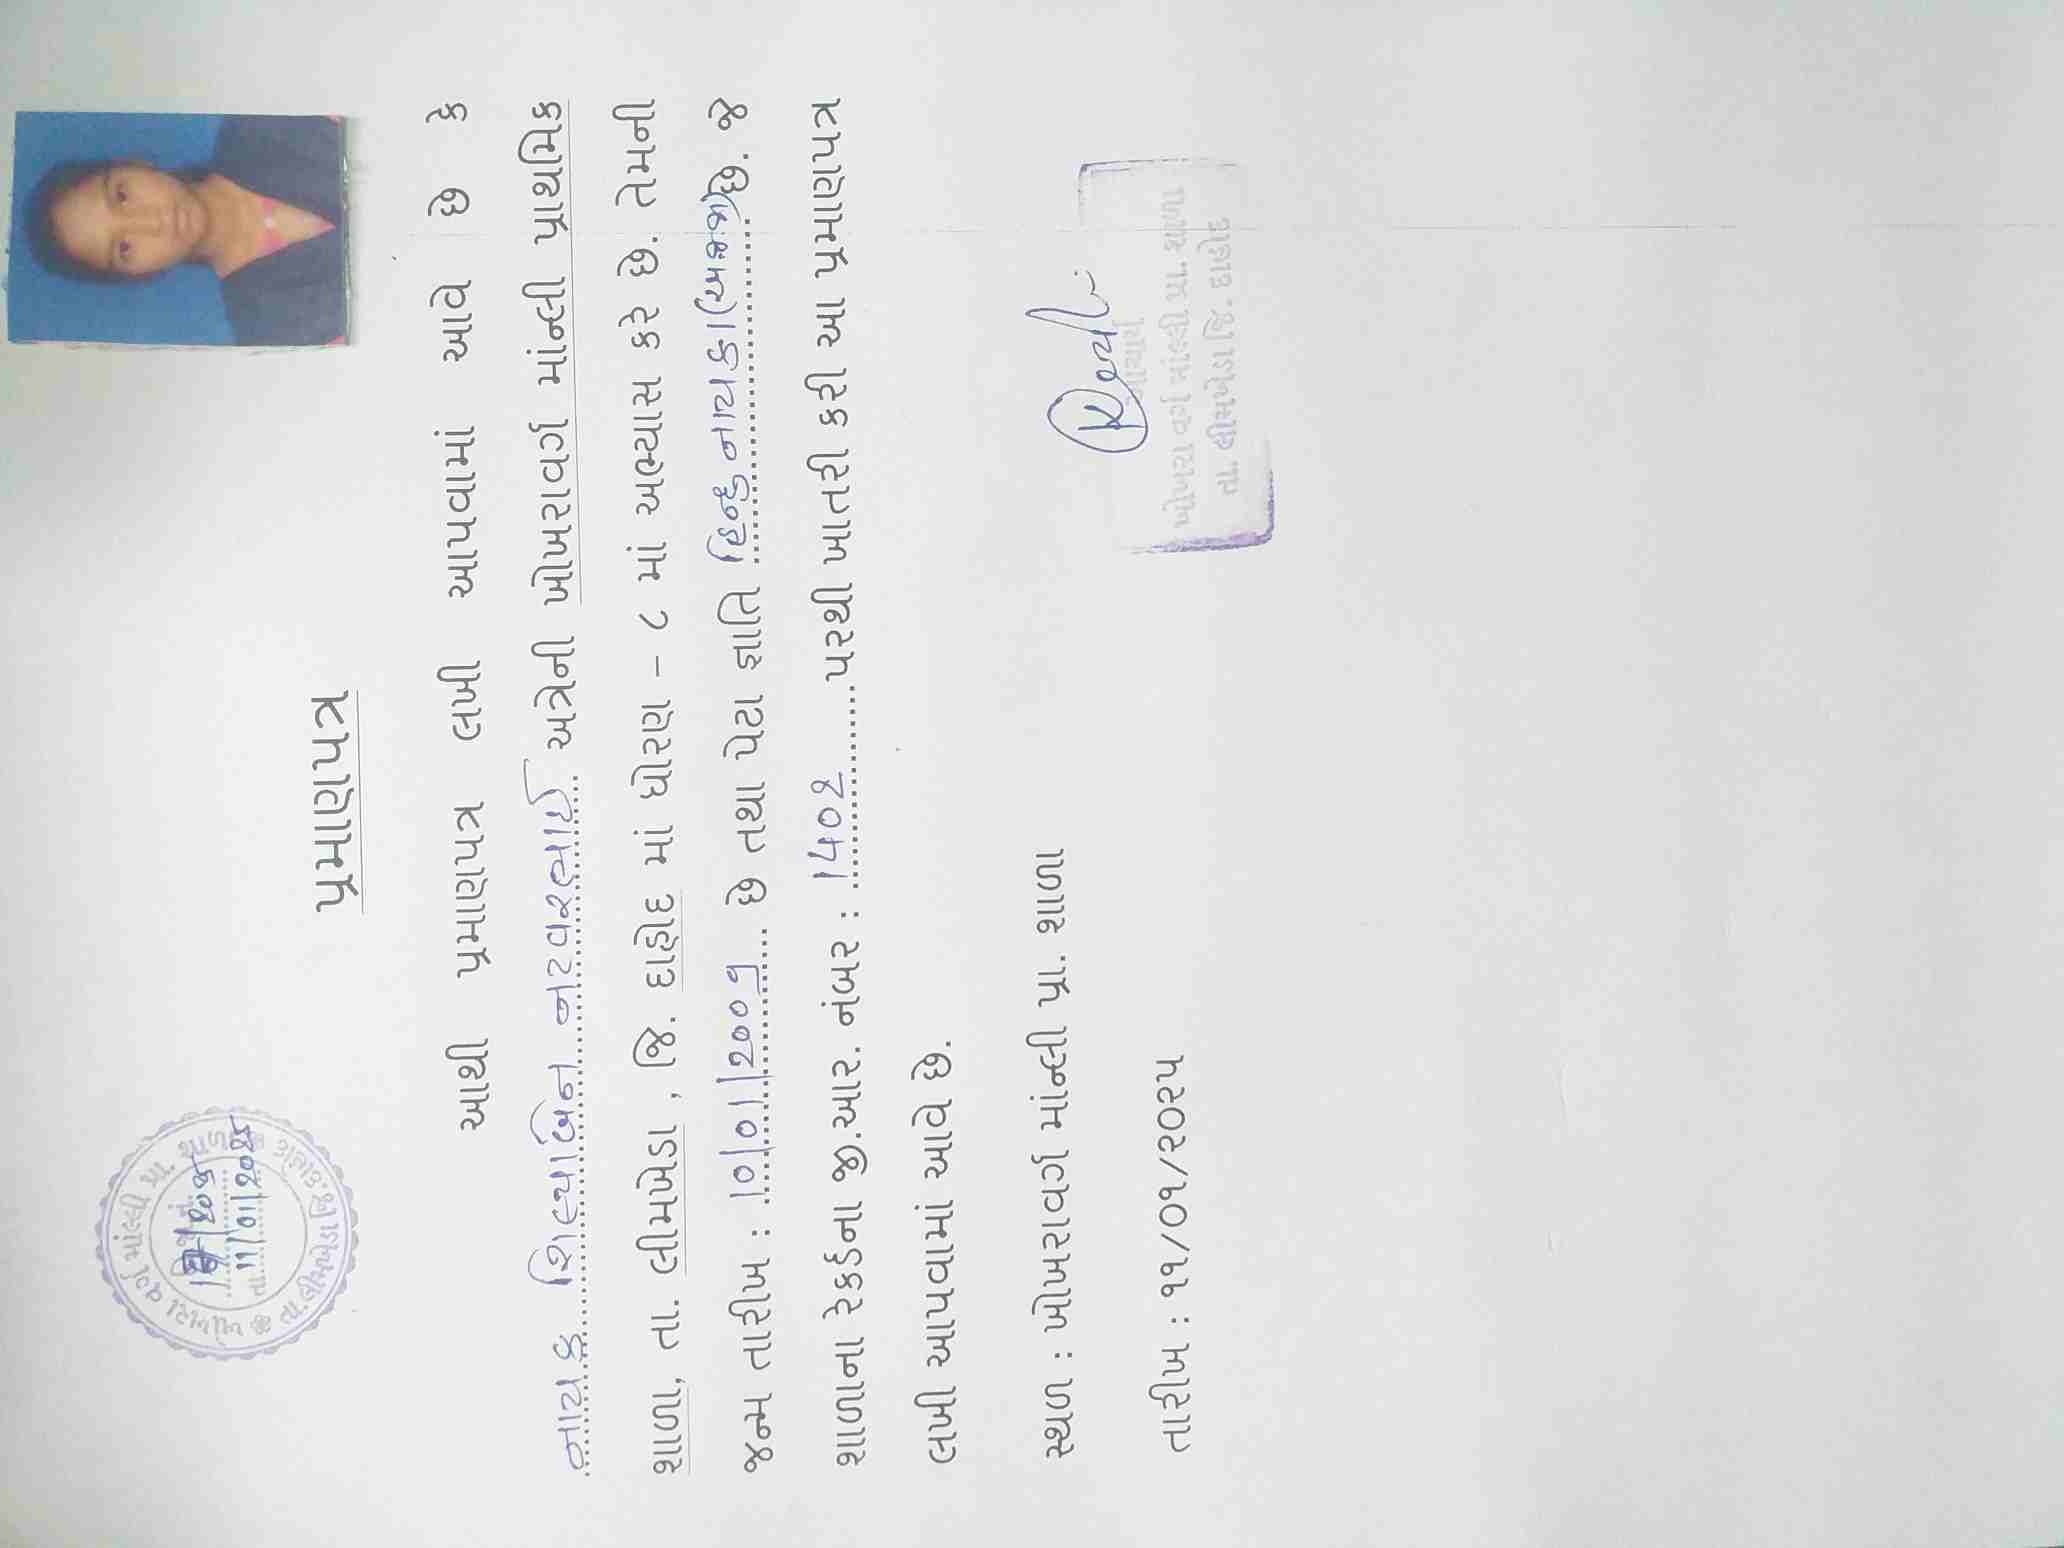 પ્રમાણપત્ર
આથી પ્રમાણપત્ર લખી આપવામાં આવે છે કે
નાયક શિલ્પાબેન નટવરભાઈ અત્રેની ખોખરાવર્ગ માંન્લી પ્રાથમિક
શાળા, તા. લીમખેડા , જિ. દાહોદ માં ધોરણ - ૮ માં અભ્યાસ કરે છે. તેમની
જન્મ તારીખ : 10/01/200૧ છે તથા પેટા જ્ઞાતિ હિન્દુ નાયકા (અ.જ.જા) છે. જે
શાળાના રેકર્ડના જી.આર. નંબર : 1402 પરથી ખાતરી કરી આ પ્રમાણપત્ર
લખી આપવામાં આવે છે.
સ્થળ : ખોખરાવર્ગ માંન્લી પ્રા. શાળા
તારીખ : ૧૧/૦૧/૨૦૨૫
આચાર્ય
ખોખરા વર્ગ માંલ્લી પ્રા. શાળા
તા. લીમખેડા જિ. દાહોદ
ખોખરા વર્ગ માંલ્લી પ્રા. શાળા
તા. લીમખેડા જિ. દાહોદ
તા. 11/01/2025